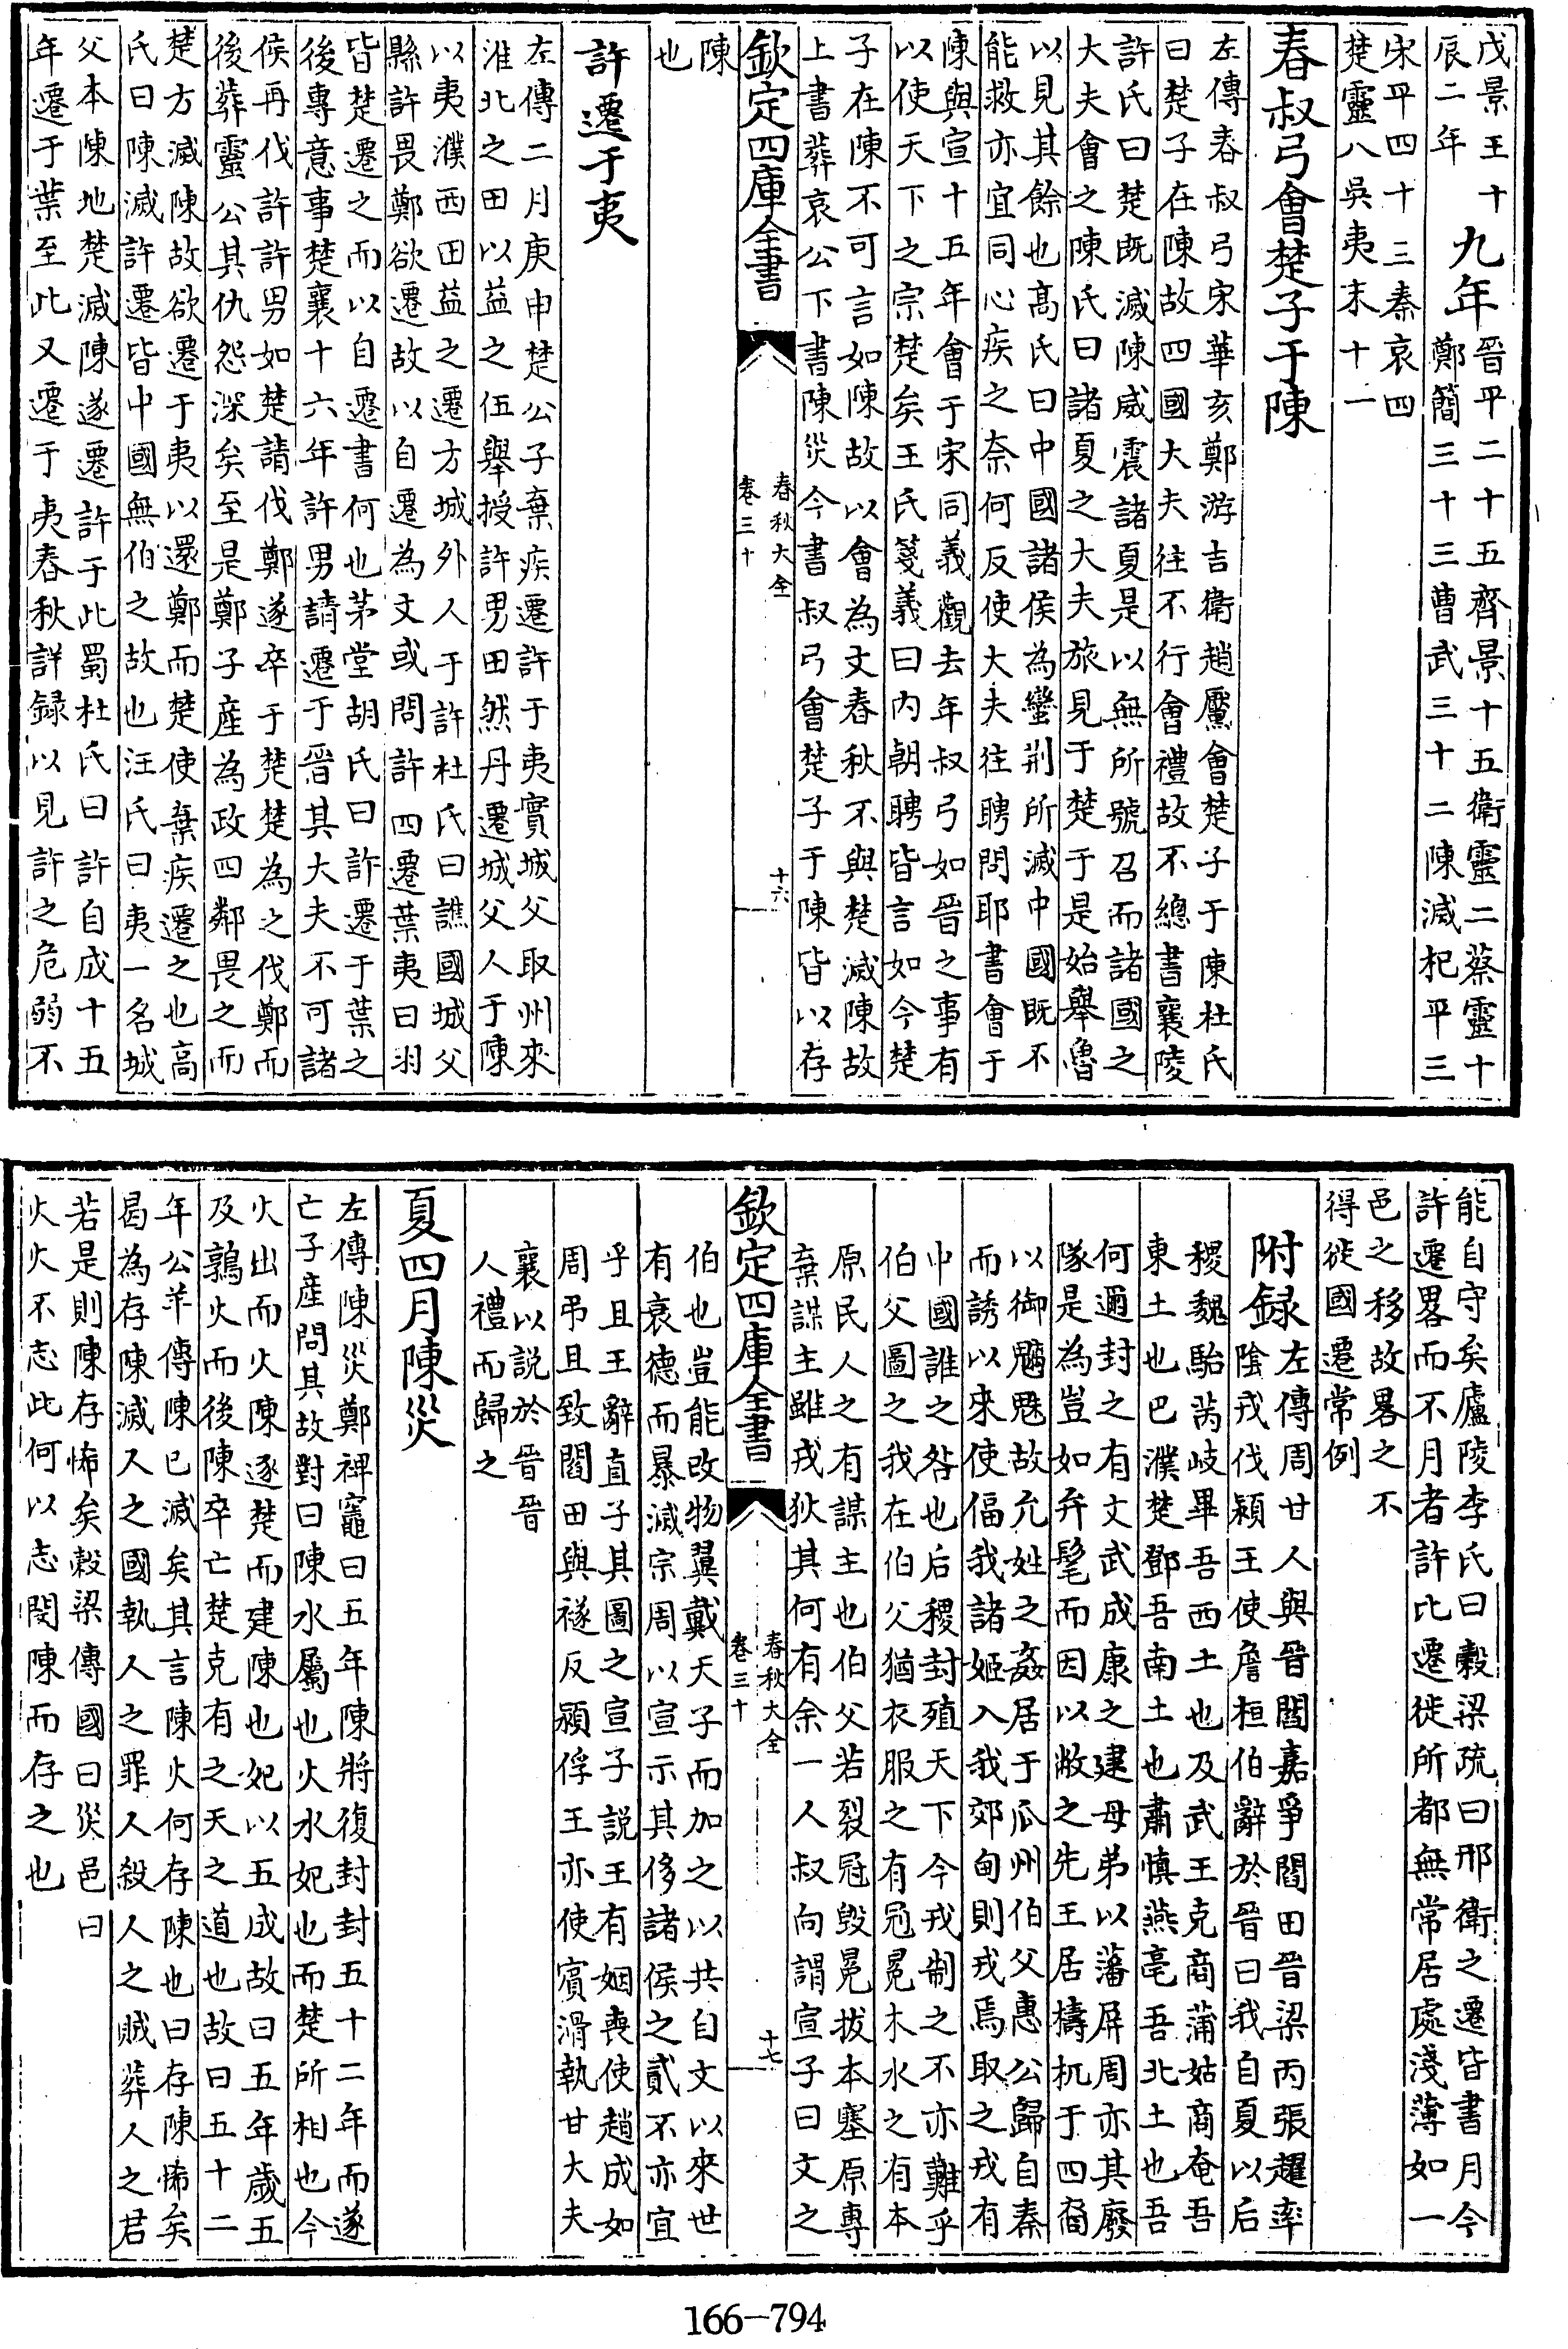 戊景王十
辰二年
九年
晉平二十五齊景十五衛靈二蔡靈十
鄭簡三十三曹武三十二陳滅杞平三
宋平四十三秦哀四
楚靈八吳夷末十一
春叔弓會楚子于陳
左傳春叔弓宋華亥鄭游吉衛趙黶會楚子于陳杜氏
曰楚子在陳故四國大夫往不行會禮故不總書襄陵
許氏曰楚既滅陳威震諸夏是以無所號召而諸國之
大夫會之陳氏曰諸夏之大夫旅見于楚于是始舉魯
以見其餘也髙氏曰中國諸侯為蠻荆所滅中國既不
能救亦宜同心疾之奈何反使大夫往聘問耶書會于
陳與宣十五年會于宋同義觀去年叔弓如晉之事有
以使天下之宗楚矣王氏箋義曰内朝聘皆言如今楚
子在陳不可言如陳故以會為文春秋不與楚滅陳故
上書葬哀公下書陳災今書叔弓會楚子于陳皆以存
欽定四庫全書
春秋大全
卷三十
十六
陳
也
許遷于夷
左傳二月庚申楚公子棄疾遷許于夷實城父取州來
淮北之田以益之伍舉授許男田然丹遷城父人于陳
以夷濮西田益之遷方城外人于許杜氏曰譙國城父
縣許畏鄭欲遷故以自遷為文或問許四遷葉夷曰羽
皆楚遷之而以自遷書何也茅堂胡氏曰許遷于葉之
後專意事楚襄十六年許男請遷于晉其大夫不可諸
侯再伐許許男如楚請伐鄭遂卒于楚楚為之伐鄭而
後葬靈公其仇怨深矣至是鄭子産為政四鄰畏之而
楚方滅陳故欲遷于夷以還鄭而楚使棄疾遷之也高
氏曰陳滅許遷皆中國無伯之故也汪氏曰夷一名城
父本陳地楚滅陳遂遷許于此蜀杜氏曰許自成十五
年遷于葉至此又遷于夷春秋詳録以見許之危弱不
能自守矣廬陵李氏曰穀梁疏曰邢衛之遷皆書月今
許遷畧而不月者許比遷徙所都無常居處淺薄如一
邑之移故畧之不
得從國遷常例
附録
左傳周甘人與晉閻嘉爭閻田晉梁丙張趯率
陰戎伐潁王使詹桓伯辭於晉曰我自夏以后
稷魏駘芮岐畢吾西土也及武王克商蒲姑商奄吾
東土也巴濮楚鄧吾南土也肅慎燕亳吾北土也吾
何邇封之有文武成康之建母弟以藩屏周亦其廢
隊是為豈如弁髦而因以敝之先王居檮杌于四裔
以御魑魅故允姓之姦居于瓜州伯父惠公歸自秦
而誘以來使偪我諸姬入我郊甸則戎焉取之戎有
中國誰之咎也后稷封殖天下今戎制之不亦難乎
伯父圖之我在伯父猶衣服之有冠冕木水之有本
原民人之有謀主也伯父若裂冠毁冕拔本塞原專
棄謀主雖戎狄其何有余一人叔向謂宣子曰文之
欽定四庫全書
春秋大全
卷三十
十七
伯也豈能改物翼戴天子而加之以共自文以來世
有衰德而暴滅宗周以宣示其侈諸侯之貳不亦宜
乎且王辭直子其圖之宣子説王有姻喪使趙成如
周弔且致閻田與襚反潁俘王亦使賓滑執甘大夫
襄以説於晉晉
人禮而歸之
夏四月陳災
左傳陳災鄭裨竈曰五年陳將復封封五十二年而遂
亡子産問其故對曰陳水屬也火水妃也而楚所相也今
火出而火陳逐楚而建陳也妃以五成故曰五年歲五
及鶉火而後陳卒亡楚克有之天之道也故曰五十二
年公羊傳陳已滅矣其言陳火何存陳也曰存陳悕矣
曷為存陳滅人之國執人之罪人殺人之賊葬人之君
若是則陳存悕矣穀梁傳國曰災邑曰
火火不志此何以志閔陳而存之也
166—794